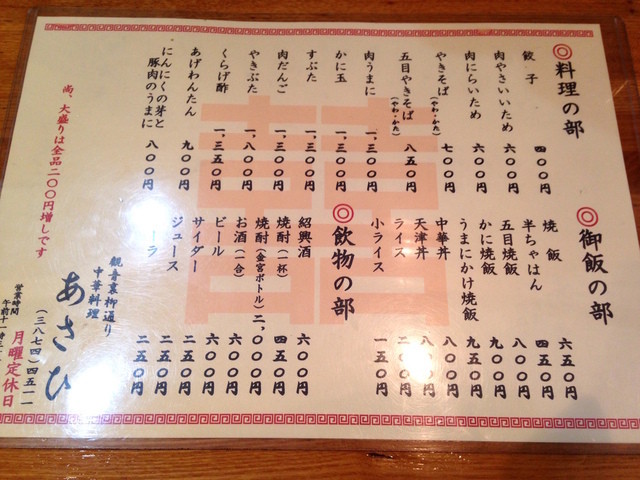 ◎料理の部
餃子 四〇〇円
肉やさいいため 六〇〇円
肉にらいため 六〇〇円
やきそば(やわ・かた) 七〇〇円
五目やきそば(やわ・かた) 八五〇円
肉うまに 一,三〇〇円
かに玉 一,三〇〇円
すぶた 一,三〇〇円
肉だんご 一,三〇〇円
やきぶた 一,八〇〇円
くらげ酢 一,三五〇円
あげわんたん 九〇〇円
にんにくの芽と
豚肉のうまに 八〇〇円
尚、大盛りは全品二〇〇円増しです
◎御飯の部
焼飯 六五〇円
半ちゃはん 四五〇円
五目焼飯 八〇〇円
かに焼飯 九〇〇円
うまにかけ焼飯 九五〇円
中華丼 八〇〇円
天津丼 八〇〇円
ライス 二〇〇円
小ライス 一五〇円
◎飲物の部
紹興酒 六〇〇円
焼酎(一杯) 三五〇円
焼酎(金宮ボトル) 二,〇〇〇円
お酒(一合) 六〇〇円
ビール 六〇〇円
サイダー 二五〇円
ジュース 二五〇円
ーラ 二五〇円
観音裏柳通り
中華料理
あさひ
(三八七四)四五一一
月曜定休日
営業時間
午前十一時